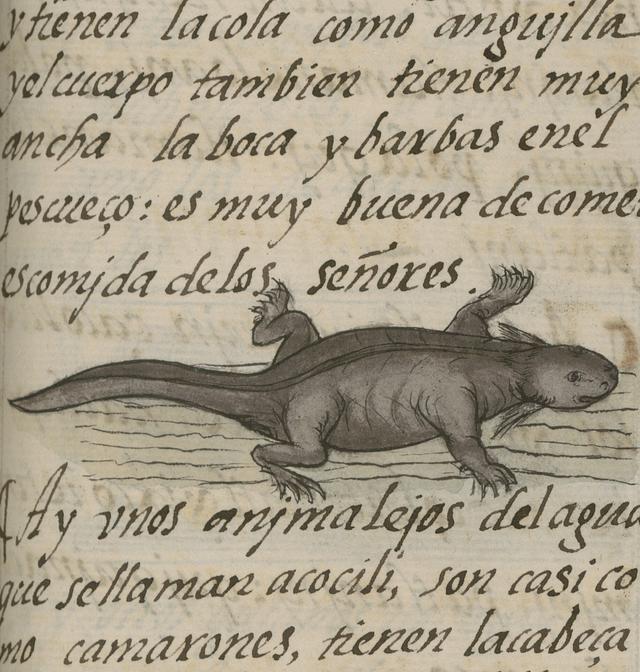 y tienen la cola como anguilla
y el cuerpo tambien tienen muy
ancha la boca y barbas en el
pescueço: es muy buena de come
es comida de los señores.
Ay vnos animalejos del agua
que se llaman acocili, son casi co
mo camarones, tienen la cabeça